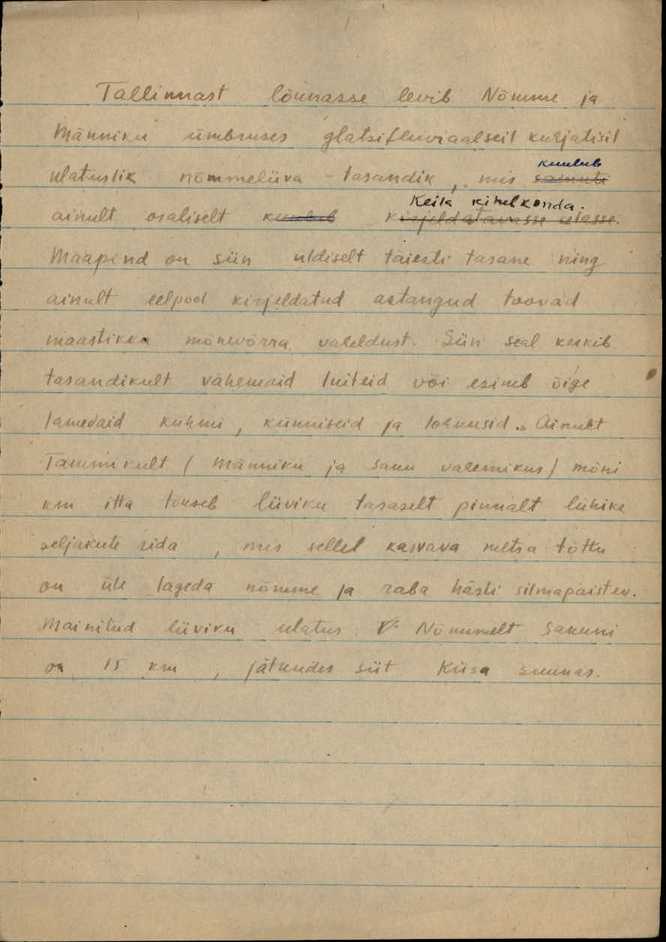 Tallinnast lõunasse levib Nõmme ja
Männiku ümbruses glatsifluviaalseil kuhjatisil
kuulub
ulatuslik nõmmeliiva-tasandik, mis samuti
Keila kihelkonda.
ainult osaliselt kuulub kirjeldatavasse alasse.
Maapind on siin üldiselt täiesti tasane ning
ainult eelpool kirjeldatud astangud toovad
maastikku mõnevõrra vaheldust. Siin seal kerkib
tasandikult vähemaid luiteid või esineb õige
lamedaid kühme, künniseid ja lohuusid. Ainult
Tammikult (Männiku ja Saku vahemikus) mõni
km itta tõuseb liiviku tasaselt pinnalt lühike
seljakute rida, mis sellel kasvava metsa tõttu
on üle lageda nõmme ja raba hästi silmapaistev.
Mainitud liiviku ulatus Nõmmelt Sakuni
on 15 km, jätkudes siit Kiisa suunas.